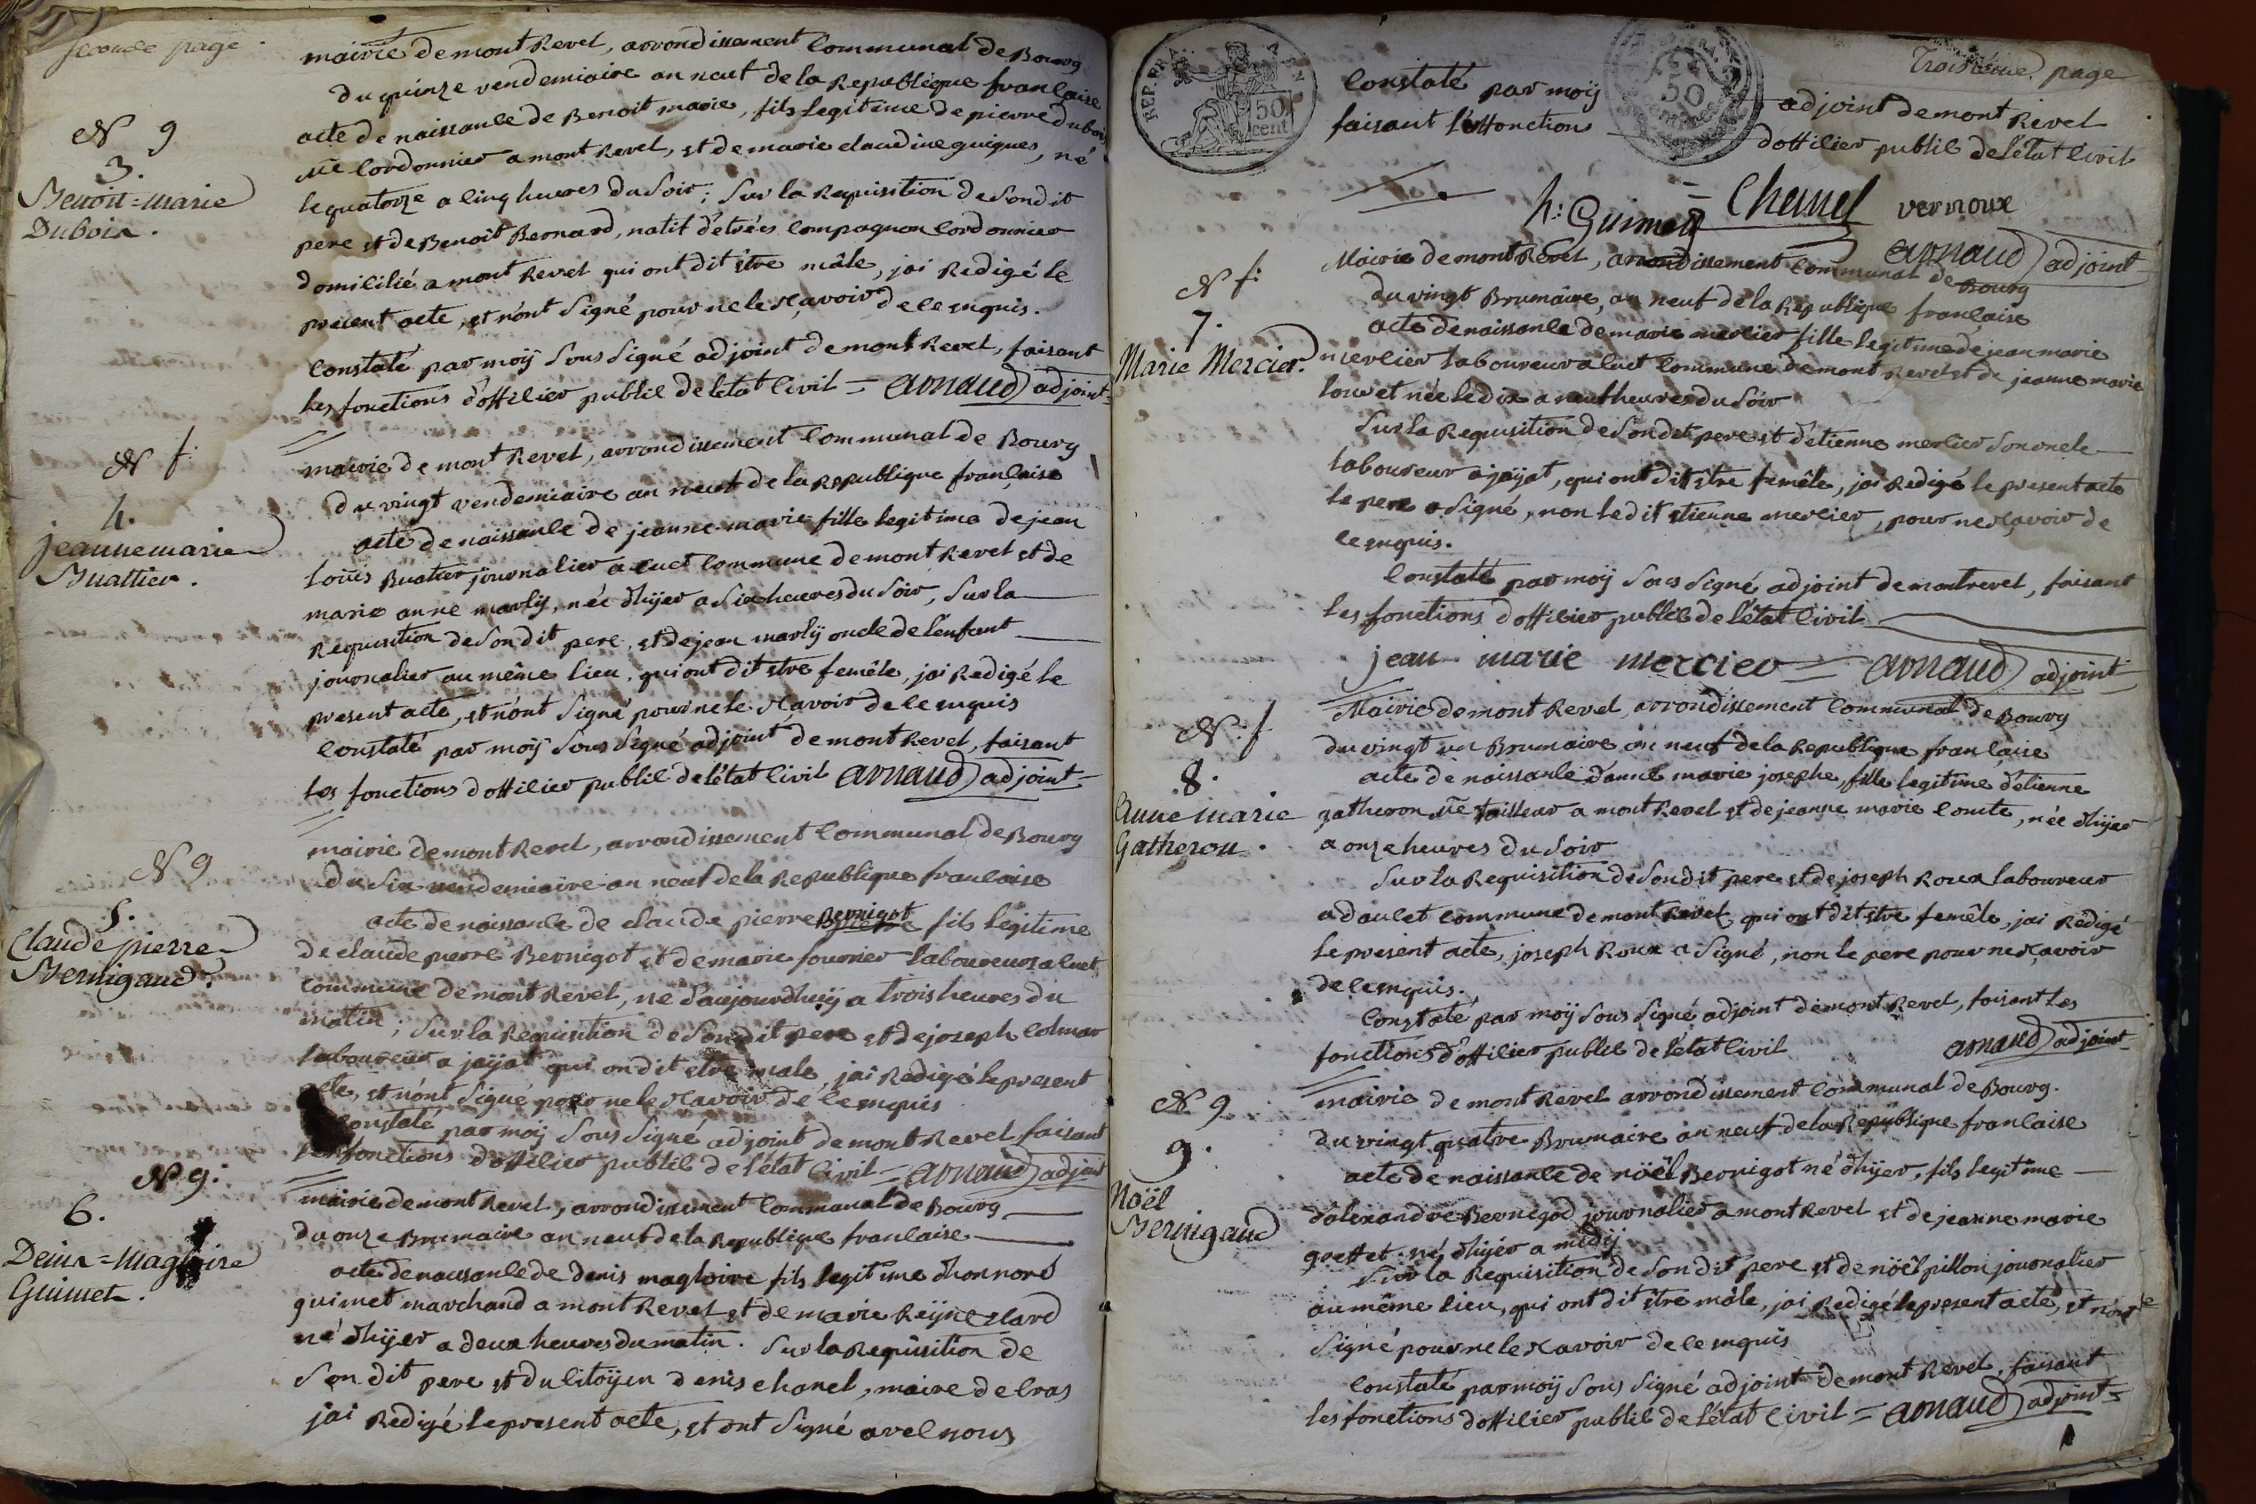 seconde page.
mairie de mont Revel, arrondissement Communal de Bourg
du quinze vendemiaire an neuf de la Republique francaise
acte de naissance de Benoit marie, fils legitime de pierre dubois
me Cordonnier a mont Revel, et de marie claudine guigues, né
le quatorze a cinq heures du soir; sur la Requisition de sondit
pere et de Benoit Bernard, natif d'etrées compagnon Cordonnier
domicilié a mont Revel qui ont dit être mâle, jai Redigé le
present acte, et n'ont signé pour ne le sçavoir de ce enquis.
Constaté par moÿ sous signé adjoint de mont Revel, faisant
les fonctions d'officier public de letat Civil = arnaud adjoint
N g
3.
Benoit=marie
Dubois.
mairie de mont Revel, arrondissement Communal de Bourg
du vingt vendemiaire an neuf de la Republique francaise
acte de naissance de jeanne marie fille legitime de jean
Louis Buatier journalier a cuet Commune de mont Revel et de
marie anne marlÿ, née d'hÿer a six heures du soir, sur la
Requisition de son dit pere, et de jean marlÿ oncle de l'enfant
journalier au même lieu, qui ont dit etre femêle, jai Redigé le
present acte, et n'ont signé pour ne le sçavoir de ce enquis
Constaté par moÿ sous signé adjoint de mont Revel, faisant
les fonctions d'officier public de l'état Civil arnaud adjoint
N f.
4.
jeanne marie
Buattier.
mairie de mont Revel, arrondissement Communal de Bourg
du six vendemiaire an neuf de la Republique francaise
acte de naissance de claude pierre Bernigot fils legitime
de claude pierre Bernigot et de marie fournier laboureurs a cuet
Commune de mont Revel, né d'aujourdhuÿ a trois heures du
matin; sur la Requisition de son dit pere et de joseph Colmar
laboureur a jaÿat qui on dit etre male, jai Redigé le present
acte, et n'ont signé pour ne le sçavoir de ce enquis
Constaté par moÿ sous signé adjoint de mont Revel, faisant
les fonctions d'officier public de l'état Civil = arnaud adjoint
N g
5.
Claude pierre
Bernigaud.
mairie de mont Revel, arrondissement Communal de Bourg
du onze Brumaire an neuf de la Republique francaise
acte de naissance de denis magloire fils legitime d'honnoré
guimet marchand a mont Revel et de marie Reÿne
né d'hÿer a deux heures du matin. sur la Requisition de
son dit pere et du Citoÿen denis chanel, maire de Cras
jai Redigé le present acte, et ont signé avec nous
N g.
6.
Denis=magloire
Guimet.
Troisième page
REP. FRA.
50 cent
50
Constaté par moÿ adjoint de mont Revel
faisant les fonctions d'officier public de l'état Civil
h: Guimet Chanel vernoux
arnaud adjoint
Mairie de mont Revel, arrondissement Communal de Bourg
du vingt Brumaire, an neuf de la Republique française
acte de naissance de marie mercier fille legitime de jean marie
mercier laboureur a cuet Commune de mont Revel et de jeanne marie
louvet née le dix a neuf heures du soir
Sur la Requisition de son dit pere et d'étienne mercier son oncle
laboureur a jaÿat, qui ont dit être femêle, jai Redigé le present acte
le pere a signé, non le dit etienne mercier, pour ne sçavoir de
ce enquis.
Constaté par moÿ sous signé adjoint de montrevel, faisant
les fonctions d'officier public de l'état Civil
jean marie mercier = arnaud adjoint
N f.
7.
Marie Mercier.
Mairie de mont Revel, arrondissement Communal de Bourg
du vingt un Brumaire an neuf de la Republique francaise
acte de naissance d'anne marie josephe, fille legitime d'etienne
gatheron me tailleur a mont Revel et de jeanne marie Comte, née d'hÿer
a onze heures du soir
Sur la Requisition de son dit pere et de joseph Roux laboureur
a daucet commune de mont Revel qui ont dit être femêle, jai Redigé
le present acte, joseph Roux a signé, non le pere pour ne sçavoir
de ce enquis.
Constaté par moÿ sous signé adjoint de mont Revel, faisant les
fonctions d'officier public de l'état Civil arnaud adjoint
N. f
8.
Anne marie
Gatheron.
mairie de mont Revel arrondissement Communal de Bourg.
du vingt quatre Brumaire an neuf de la Republique francaise
acte de naissance de nöel Bernigot né d'hÿer, fils legitime
d'alexandre Bernigod journalier a mont Revel et de jeanne marie
né d'hÿer a midÿ
Sur la Requisition de son dit pere et de nöel pillon journalier
au même lieu, qui ont dit être mâle, jai Redigé le present acte, et n'ont
signé pour ne le sçavoir de ce enquis
Constaté par moÿ sous signé adjoint de mont Revel, faisant
les fonctions d'officier public de l'état Civil = arnaud adjoint
N g
9.
Noël
Bernigaud